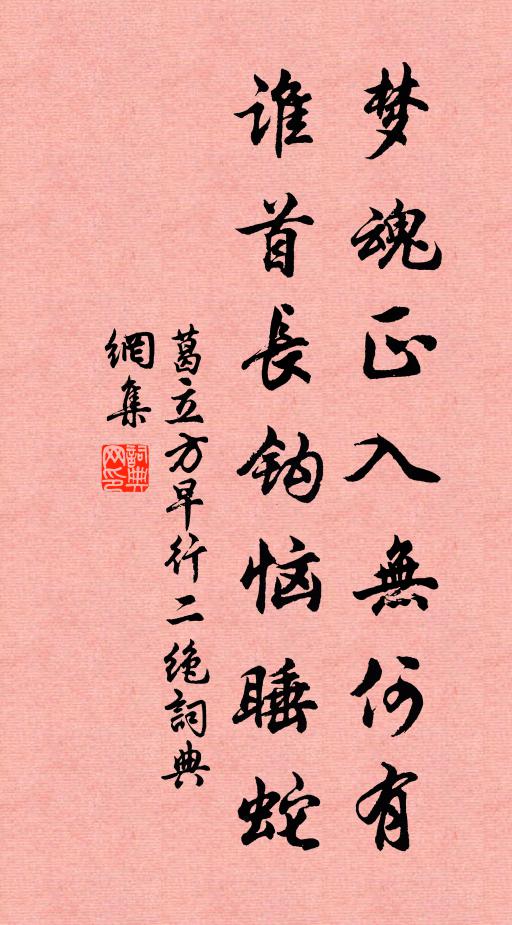 梦魂正入無何有
谁首長钩恼睡蛇
葛立方早行二绝詞典
網集
詞典
网印